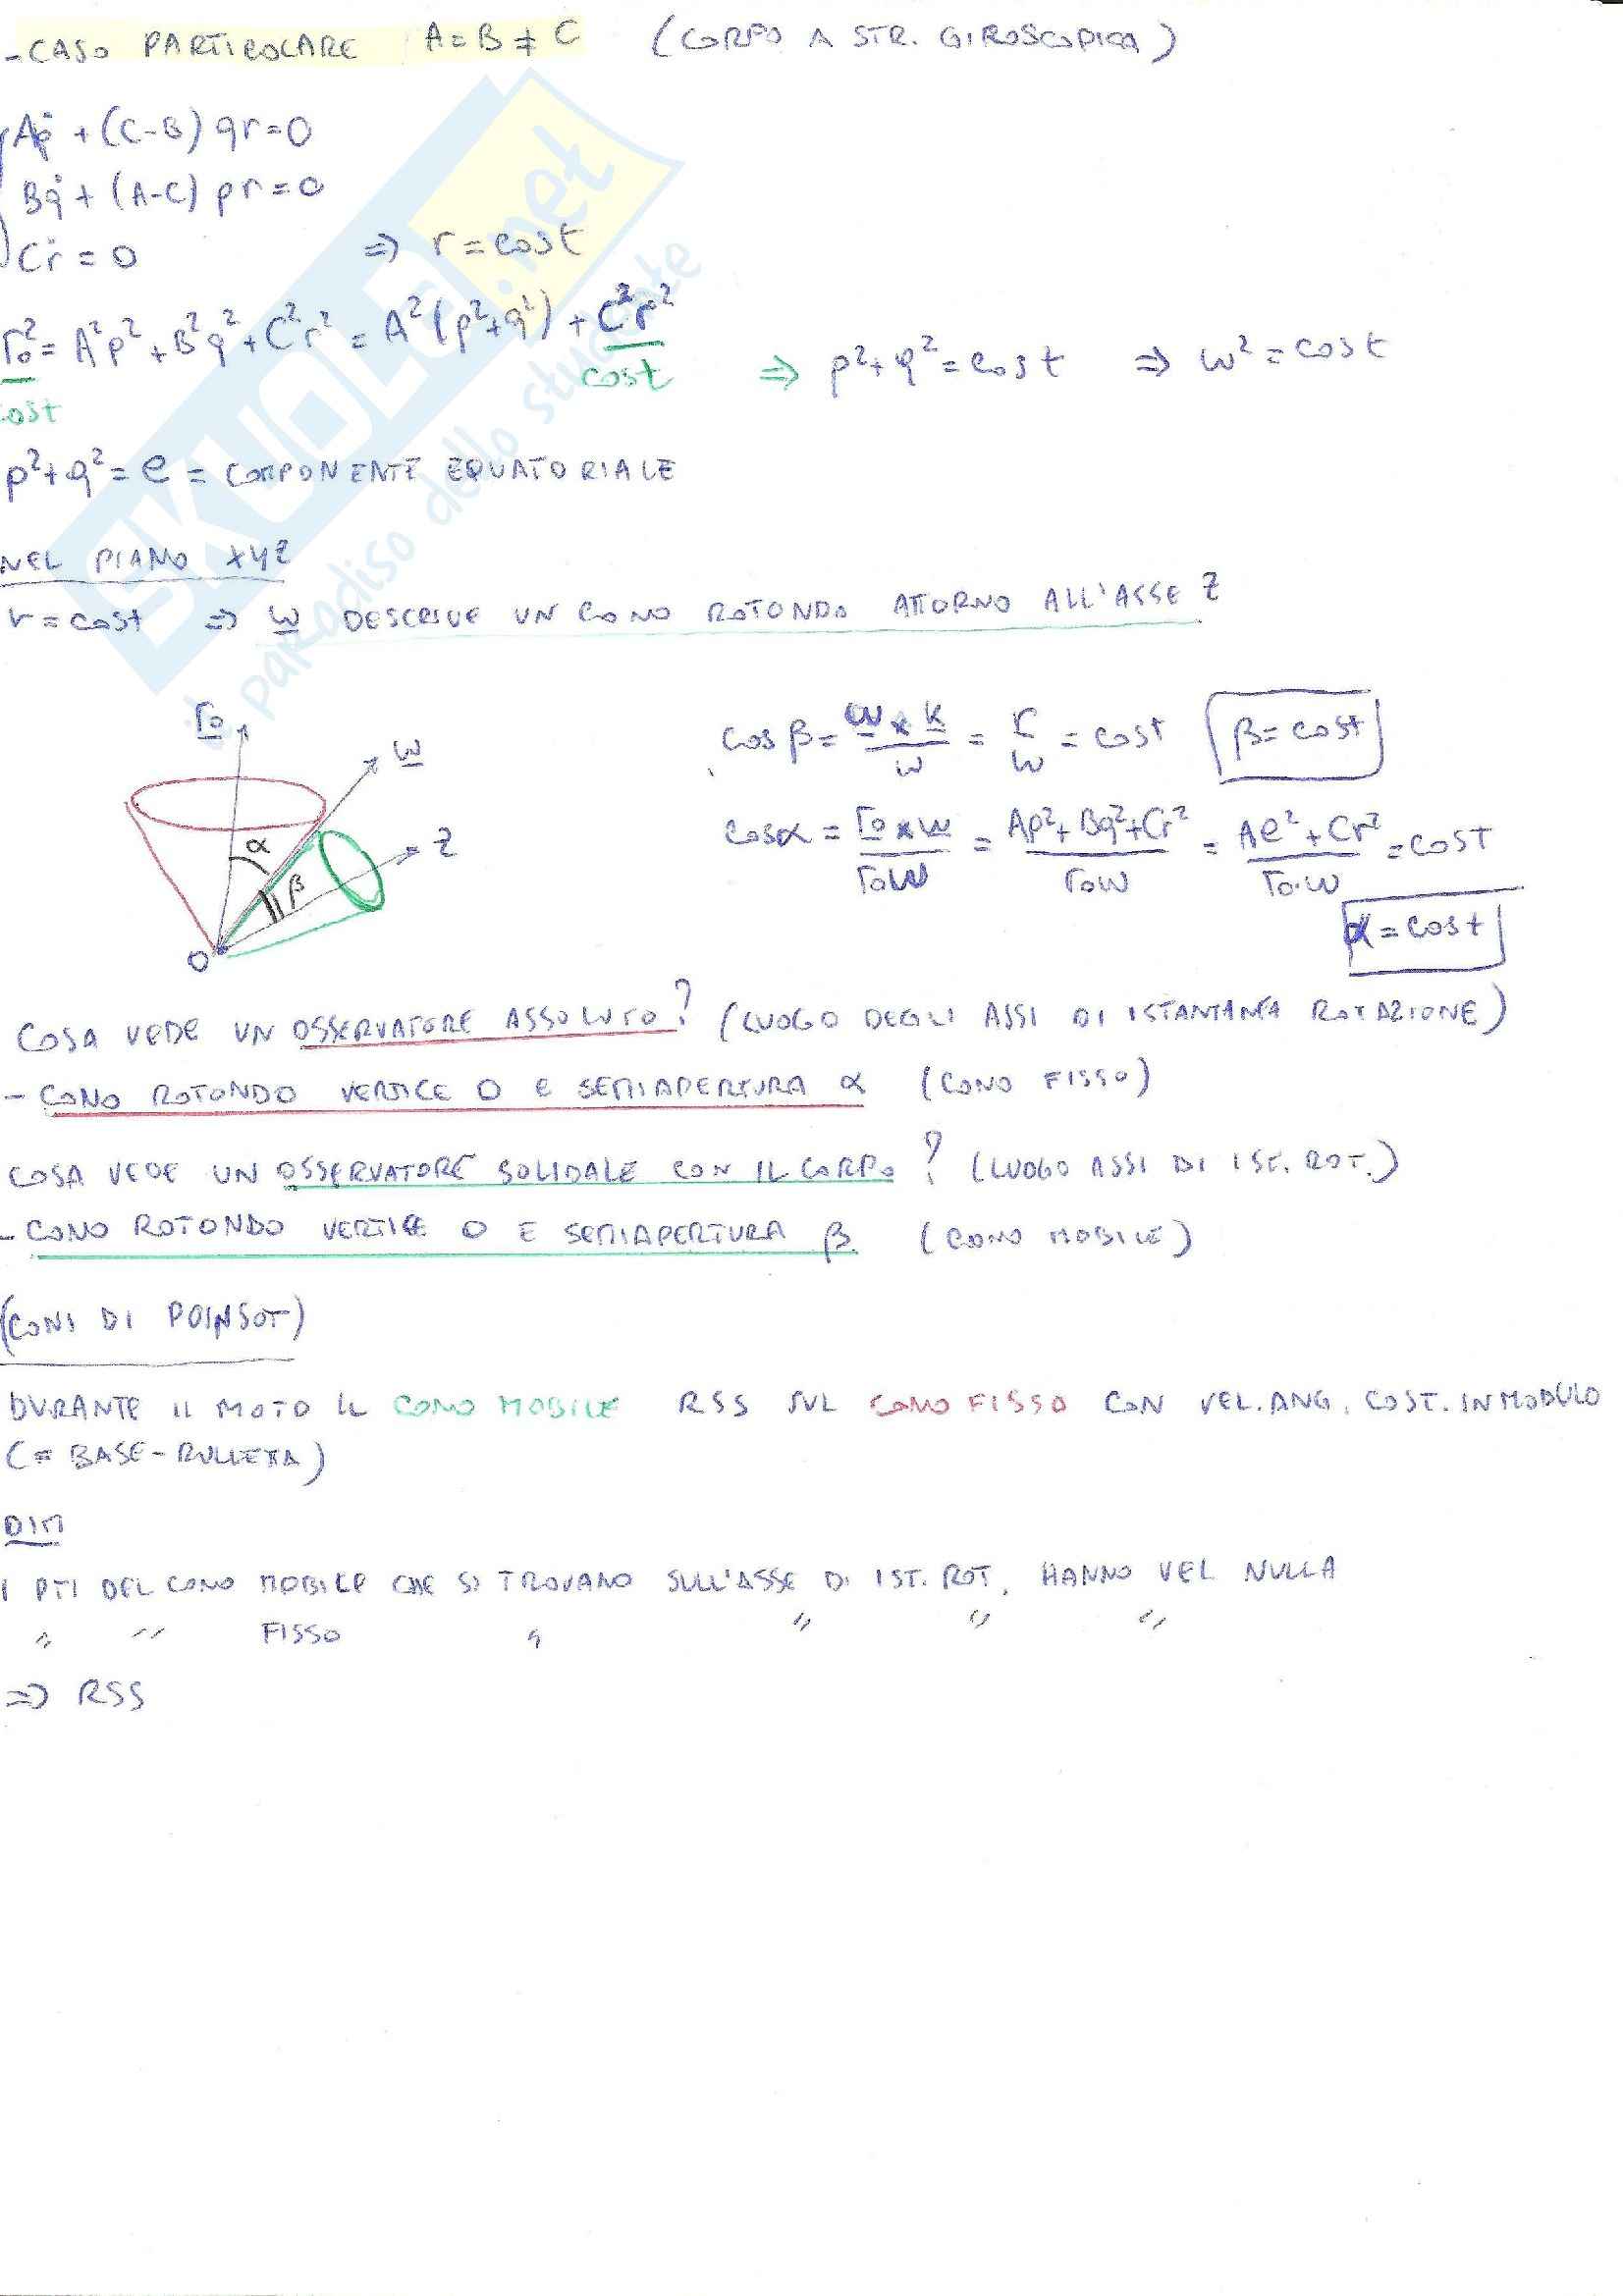 - CASO PARTICOLARE A = B ≠ C (CORPO A STR. GIROSCOPICA)
Aṗ + (C-B) qr = 0
Bq̇ + (A-C) pr = 0
Cṙ = 0 ⇒ r = cost
Γo² = A²p² + B²q² + C²r² = A²(p²+q²) + C²r² ⇒ p²+q² = cost ⇒ ω² = cost
cost
cost
p²+q² = e = COMPONENTE EQUATORIALE
NEL PIANO XYZ
r = cost ⇒ ω DESCRIVE UN CONO ROTONDO ATTORNO ALL'ASSE Z
Γo
ω
Z
α
β
O
cos β = ω × k / ω = r / ω = cost β = cost
cos α = Γo × ω / Γo ω = Ap² + Bq² + Cr² / Γo ω = Ae² + Cr² / Γo·ω = COST
α = cost
COSA VEDE UN OSSERVATORE ASSOLUTO? (LUOGO DEGLI ASSI DI ISTANTANEA ROTAZIONE)
- CONO ROTONDO VERTICE O E SEMIAPERTURA α (CONO FISSO)
COSA VEDE UN OSSERVATORE SOLIDALE CON IL CORPO? (LUOGO ASSI DI IST. ROT.)
- CONO ROTONDO VERTICE O E SEMIAPERTURA β. (CONO MOBILE)
(CONI DI POINSOT)
DURANTE IL MOTO IL CONO MOBILE RSS SUL CONO FISSO CON VEL. ANG. COST. IN MODULO
(= BASE-RULLETTA)
DIM
I PTI DEL CONO MOBILE CHE SI TROVANO SULL'ASSE DI IST. ROT. HANNO VEL NULLA
" " FISSO " " " "
⇒ RSS
SKUOLA.net
il paradiso dello studente